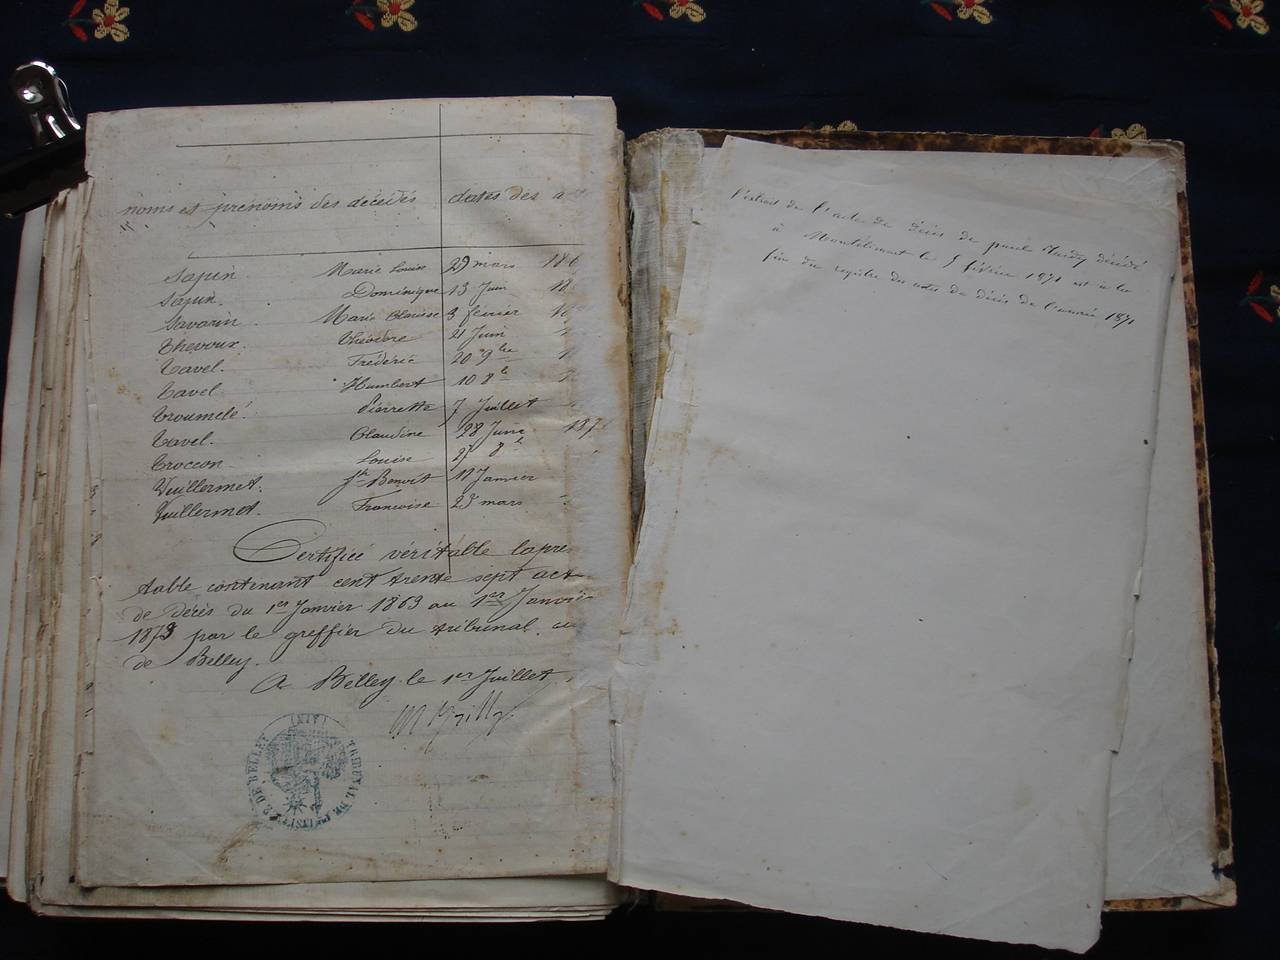 noms et prénoms des décédés dates des
Sapin. Marie Louise 29 mars 186
Sapin. Dominique 13 Juin 18
Savarin. Marie Clarisse 3 février
Thevoux. Théodore 21 Juin
Tavel. Frédéric 20 9bre
Tavel. Humbert 10 8b
Troumelé. Pierrette 7 Juillet
Tavel. Claudine 28 Juin 187
Troccon. Louise 27 8b
Vuillermet. Jh Benoit 18 Janvier
Vuillermet. Francoise 23 mars
Certifiée véritable la pre
table contenant cent trente sept act
de décès du 1er Janvier 1863 au 1er Janvier
1873 par le greffier du tribunal
de Belley.
A Belley le 1er Juillet
TRIBUNAL DE 1ère INSTCE DE BELLEY (AIN)
l'extrait de l'acte de décès de paul décédé
à le 5 février 1871 est à la
fin du registre des actes de décès de l'année 1871